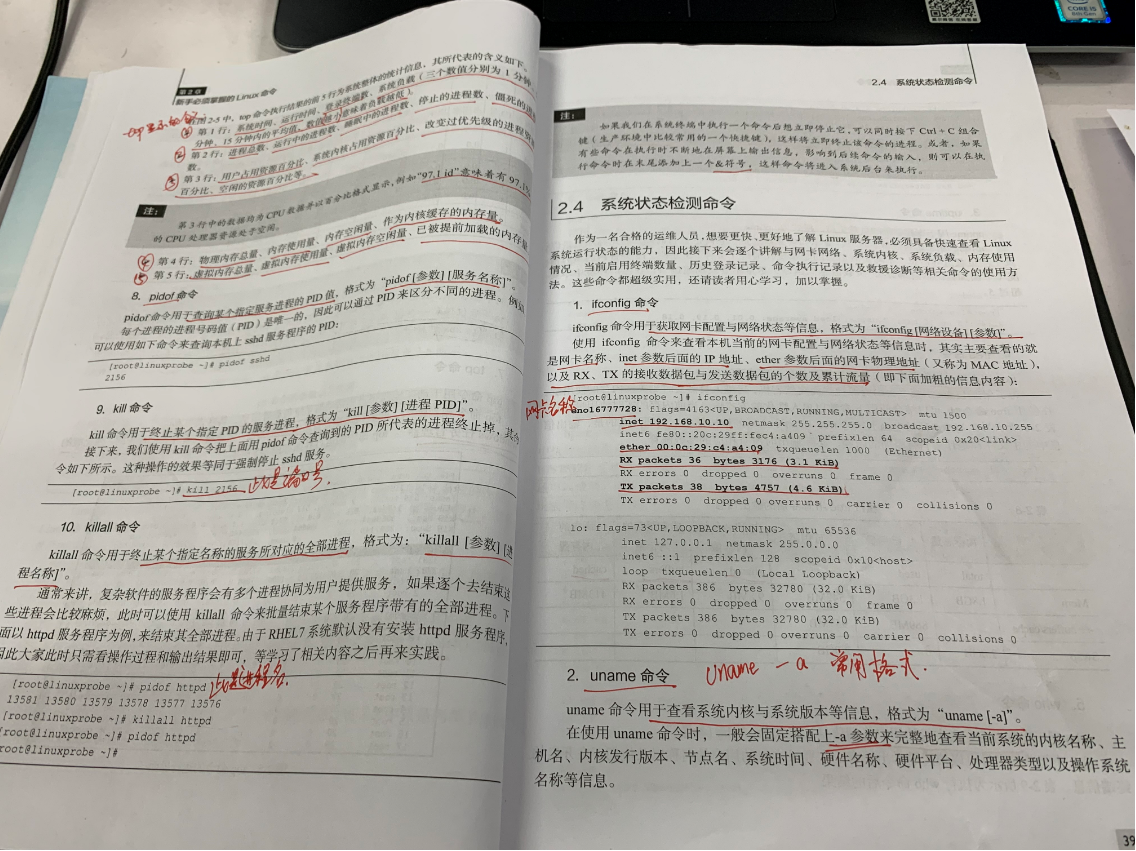 第2章
新手必须掌握的 Linux 命令
图2-5中，top 命令执行结果的前5行为系统整体的统计信息，其所代表的含义如下。
① 第1行：系统时间、运行时间、登录终端数、系统负载（三个数值分别为1分钟、
分钟、15分钟内的平均值，数值越小意味着负载越低）。
② 第2行：进程总数、运行中的进程数、睡眠中的进程数、停止的进程数、僵死的进
数。
③ 第3行：用户占用资源百分比、系统内核占用资源百分比、改变过优先级的进程资
百分比、空闲的资源百分比等。
注：
第3行中的数据均为CPU数据并以百分比格式显示，例如“97.1 id”意味着有97.1%
的CPU处理器资源处于空闲。
④ 第4行：物理内存总量、内存使用量、内存空闲量、作为内核缓存的内存量。
⑤ 第5行：虚拟内存总量、虚拟内存使用量、虚拟内存空闲量、已被提前加载的内存量
8. pidof 命令
pidof 命令用于查询某个指定服务进程的PID值，格式为“pidof [参数] [服务名称]”。
每个进程的进程号码值（PID）是唯一的，因此可以通过PID来区分不同的进程。例如
可以使用如下命令来查询本机上 sshd 服务程序的PID：
[root@linuxprobe ~]# pidof sshd
2156
9. kill 命令
kill 命令用于终止某个指定PID的服务进程，格式为“kill [参数] [进程PID]”。
接下来，我们使用 kill 命令把上面用 pidof 命令查询到的PID所代表的进程终止掉，其
令如下所示。这种操作的效果等同于强制停止 sshd 服务。
[root@linuxprobe ~]# kill 2156 此是端口号.
10. killall 命令
killall 命令用于终止某个指定名称的服务所对应的全部进程，格式为：“killall [参数] [进
程名称]”。
通常来讲，复杂软件的服务程序会有多个进程协同为用户提供服务，如果逐个去结束这
些进程会比较麻烦，此时可以使用 killall 命令来批量结束某个服务程序带有的全部进程。下
面以 httpd 服务程序为例，来结束其全部进程。由于 RHEL7 系统默认没有安装 httpd 服务程序，
因此大家此时只需看操作过程和输出结果即可，等学习了相关内容之后再来实践。
[root@linuxprobe ~]# pidof httpd 此是进程名.
13581 13580 13579 13578 13577 13576
[root@linuxprobe ~]# killall httpd
[root@linuxprobe ~]# pidof httpd
root@linuxprobe ~]#
2.4 系统状态检测命令
注：
如果我们在系统终端中执行一个命令后想立即停止它，可以同时按下 Ctrl + C 组合
键（生产环境中比较常用的一个快捷键），这样将立即终止该命令的进程。或者，如果
有些命令在执行时不断地在屏幕上输出信息，影响到后续命令的输入，则可以在执
行命令时在末尾添加上一个&符号，这样命令将进入系统后台来执行。
2.4 系统状态检测命令
作为一名合格的运维人员，想要更快、更好地了解 Linux 服务器，必须具备快速查看 Linux
系统运行状态的能力，因此接下来会逐个讲解与网卡网络、系统内核、系统负载、内存使用
情况、当前启用终端数量、历史登录记录、命令执行记录以及救援诊断等相关命令的使用方
法。这些命令都超级实用，还请读者用心学习，加以掌握。
1. ifconfig 命令
ifconfig 命令用于获取网卡配置与网络状态等信息，格式为“ifconfig [网络设备] [参数]”。
使用 ifconfig 命令来查看本机当前的网卡配置与网络状态等信息时，其实主要查看的就
是网卡名称、inet 参数后面的 IP 地址、ether 参数后面的网卡物理地址（又称为 MAC 地址），
以及 RX、TX 的接收数据包与发送数据包的个数及累计流量（即下面加粗的信息内容）：
[root@linuxprobe ~]# ifconfig
网卡名称 eno16777728: flags=4163<UP,BROADCAST,RUNNING,MULTICAST> mtu 1500
inet 192.168.10.10 netmask 255.255.255.0 broadcast 192.168.10.255
inet6 fe80::20c:29ff:fec4:a409 prefixlen 64 scopeid 0x20<link>
ether 00:0c:29:c4:a4:09 txqueuelen 1000 (Ethernet)
RX packets 36 bytes 3176 (3.1 KiB)
RX errors 0 dropped 0 overruns 0 frame 0
TX packets 38 bytes 4757 (4.6 KiB)
TX errors 0 dropped 0 overruns 0 carrier 0 collisions 0
lo: flags=73<UP,LOOPBACK,RUNNING> mtu 65536
inet 127.0.0.1 netmask 255.0.0.0
inet6 ::1 prefixlen 128 scopeid 0x10<host>
loop txqueuelen 0 (Local Loopback)
RX packets 386 bytes 32780 (32.0 KiB)
RX errors 0 dropped 0 overruns 0 frame 0
TX packets 386 bytes 32780 (32.0 KiB)
TX errors 0 dropped 0 overruns 0 carrier 0 collisions 0
2. uname 命令 uname -a 常用格式.
uname 命令用于查看系统内核与系统版本等信息，格式为“uname [-a]”。
在使用 uname 命令时，一般会固定搭配上-a 参数来完整地查看当前系统的内核名称、主
机名、内核发行版本、节点名、系统时间、硬件名称、硬件平台、处理器类型以及操作系统
名称等信息。
39
CORE i5